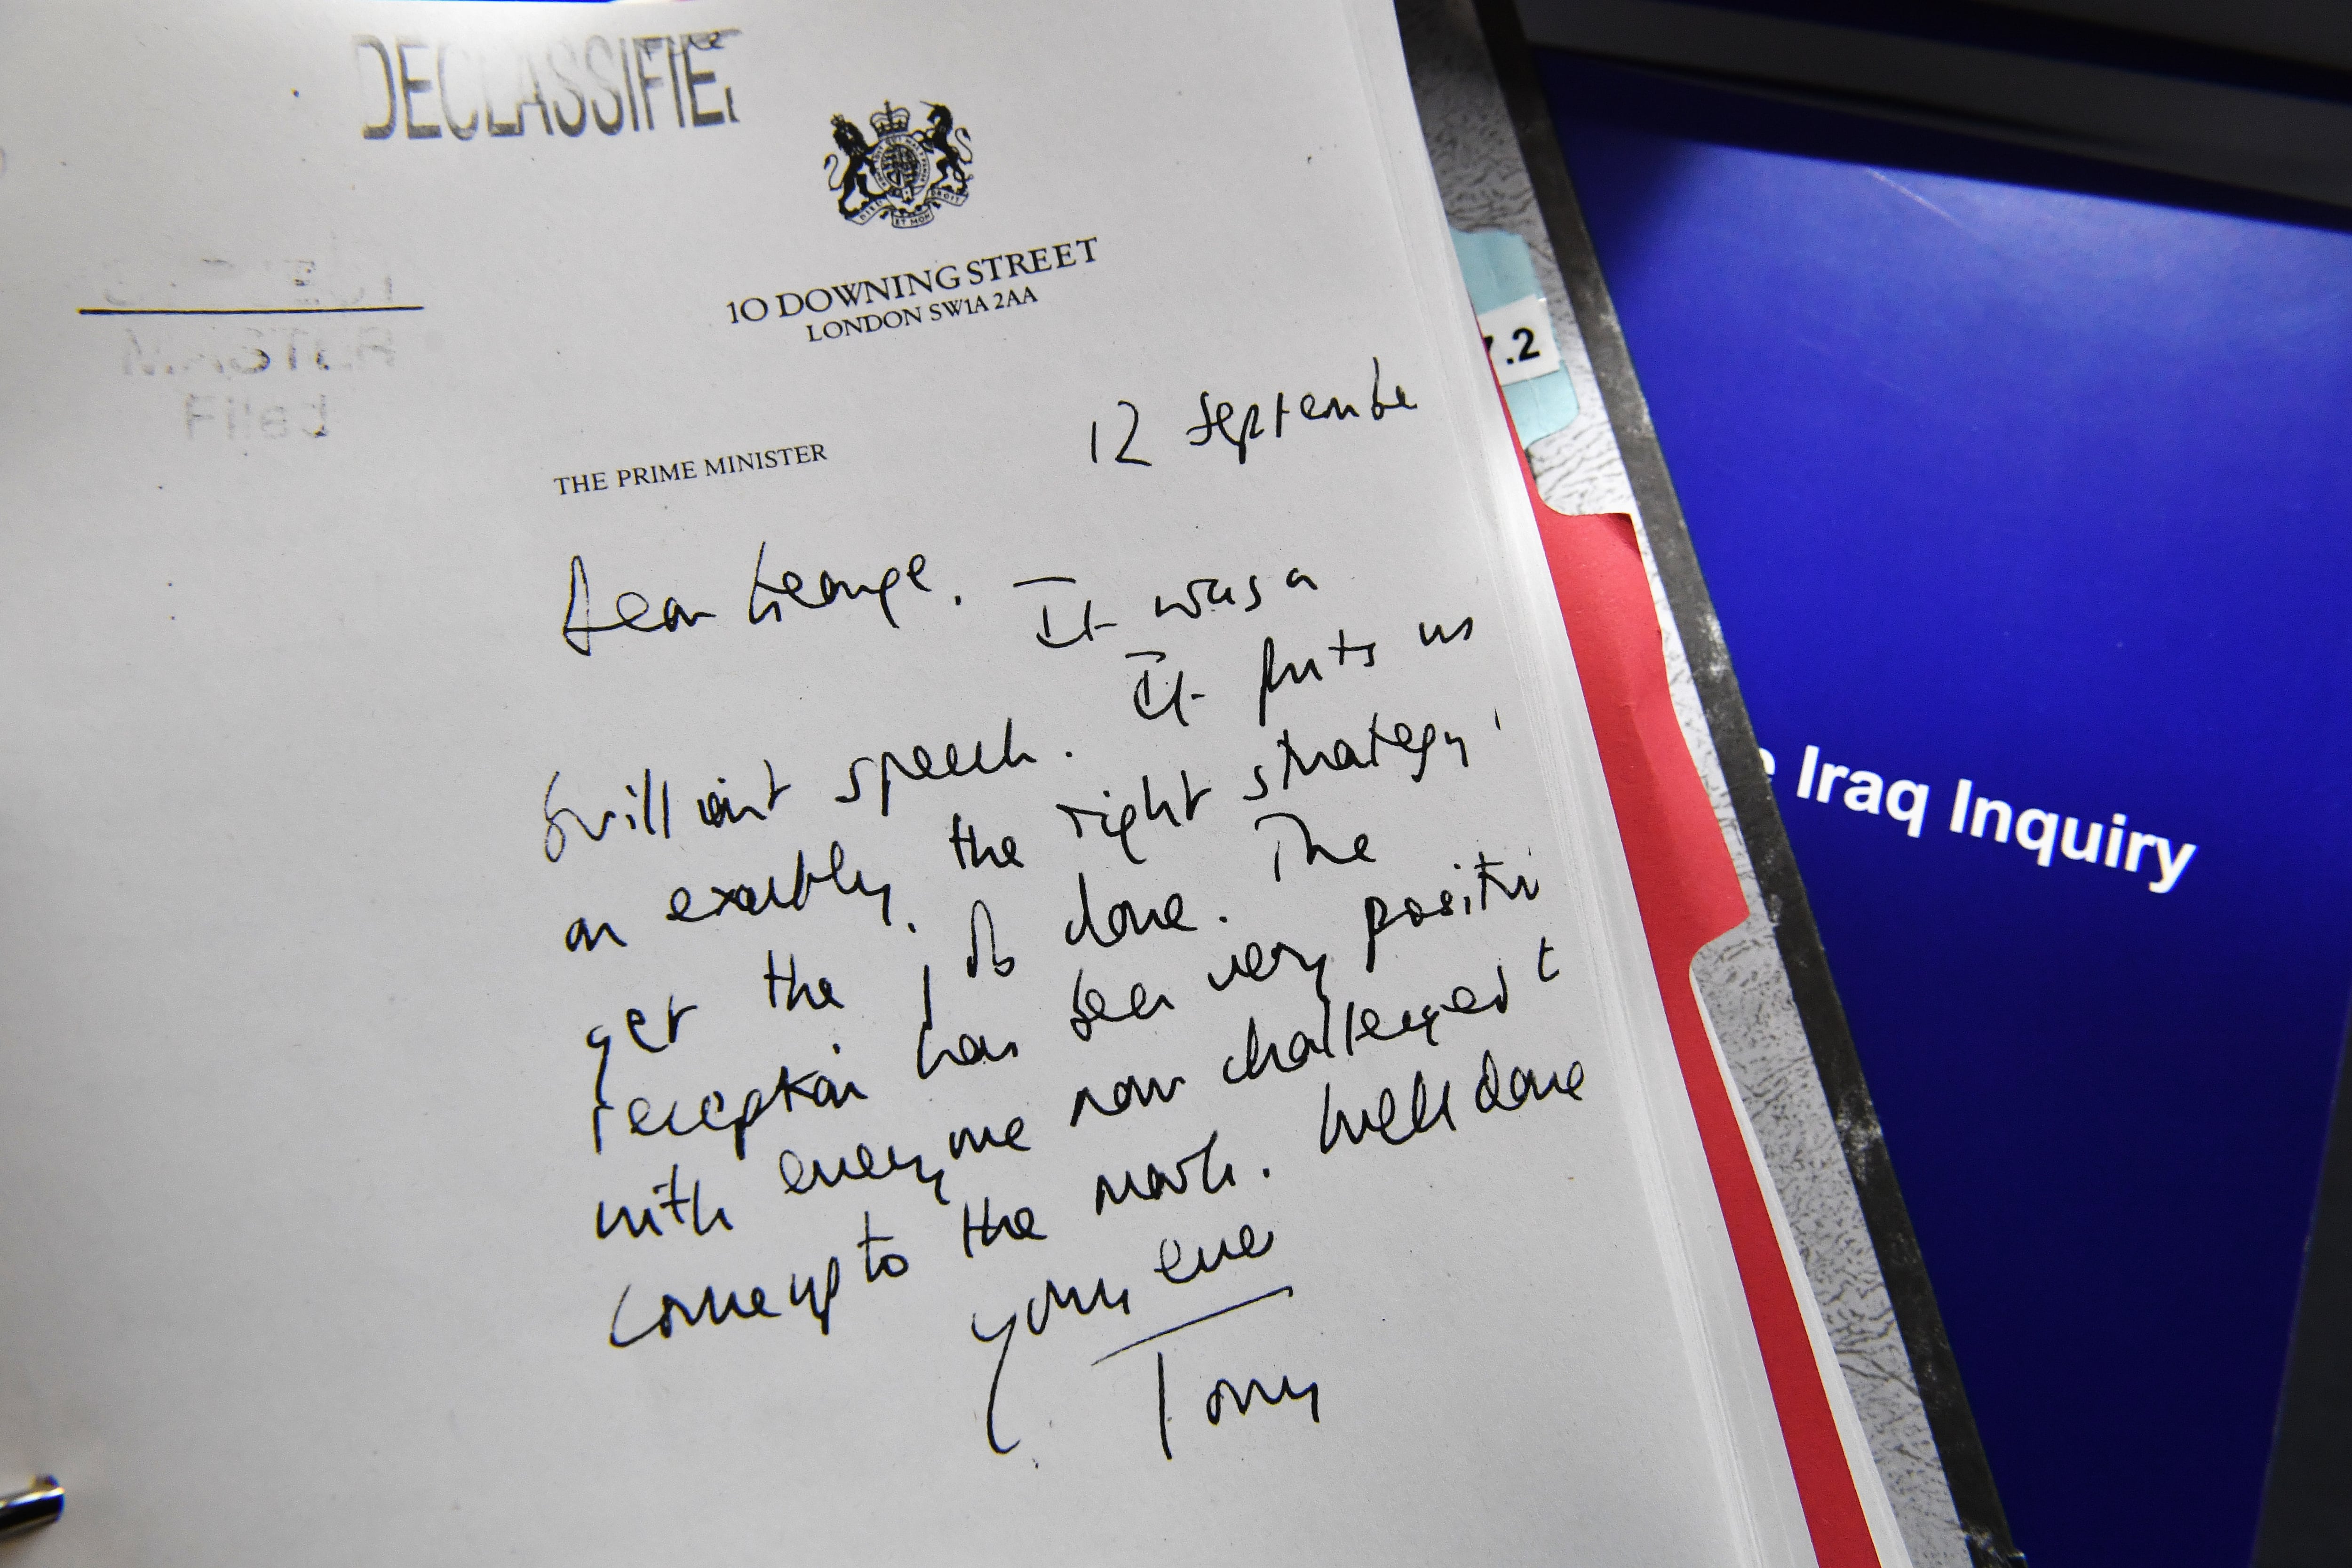 DECLASSIFIE
10 DOWNING STREET
LONDON SW1A 2AA
Filed
THE PRIME MINISTER
12 Septembe
Dear George. It was a
brilliant speech. It puts us
on exactly the right strategy
get the job done. The
reception has been very positi
with everyone now challenged t
come up to the mark. Well done
yours ever
Tony
7.2
e Iraq Inquiry